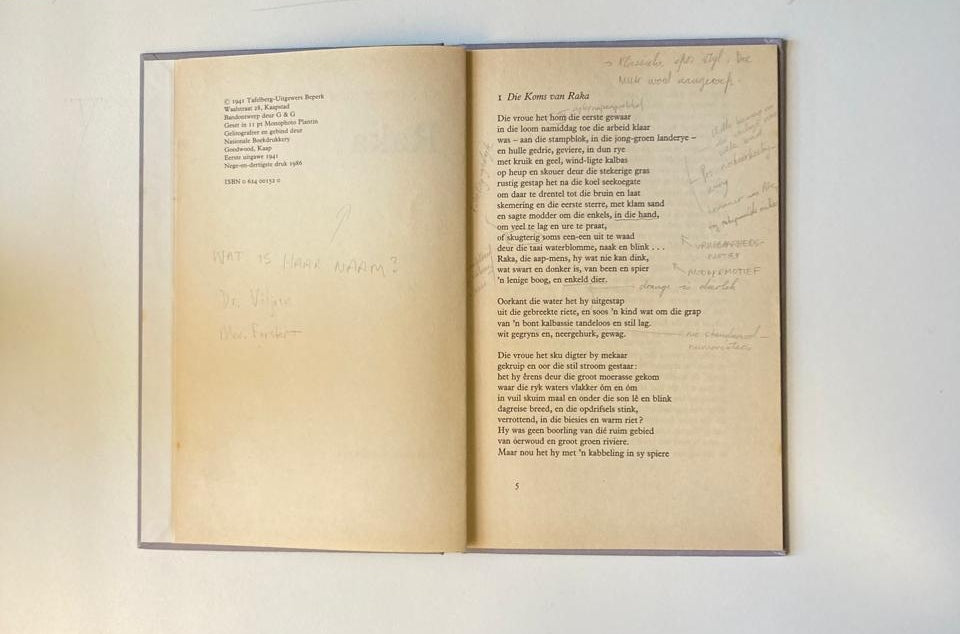 © 1941 Tafelberg-Uitgewers Beperk
Waalstraat 28, Kaapstad
Bandontwerp deur G & G
Geset in 11 pt Monophoto Plantin
Gelitografeer en gebind deur
Nasionale Boekdrukkery
Goodwood, Kaap
Eerste uitgawe 1941
Nege-en-dertigste druk 1986
ISBN 0 624 00152 0
WAT IS HAAR NAAM?
Dr. Viljoen
Mev.
Klassieke epos styl. Die
word aangeroep.
1 Die Koms van Raka
Die vroue het hom die eerste gewaar
in die loom namiddag toe die arbeid klaar
was – aan die stampblok, in die jong-groen landerye –
en hulle gedrie, geviere, in dun rye
met kruik en geel, wind-ligte kalbas
op heup en skouer deur die stekerige gras
rustig gestap het na die koel seekoegate
om daar te drentel tot die bruin en laat
skemering en die eerste sterre, met klam sand
en sagte modder om die enkels, in die hand,
om veel te lag en ure te praat,
of skugterig soms een-een uit te waad
deur die taai waterblomme, naak en blink . . .
Raka, die aap-mens, hy wat nie kan dink,
wat swart en donker is, van been en spier
'n lenige boog, en enkeld dier.
MODDERMOTIEF
drange is dierlik
Oorkant die water het hy uitgestap
uit die gebreekte riete, en soos 'n kind wat om die grap
van 'n bont kalbassie tandeloos en stil lag.
wit gegryns en, neergehurk, gewag.
Die vroue het sku digter by mekaar
gekruip en oor die stil stroom gestaar:
het hy êrens deur die groot moerasse gekom
waar die ryk waters vlakker óm en óm
in vuil skuim maal en onder die son lê en blink
dagreise breed, en die opdrifsels stink,
verrottend, in die biesies en warm riet?
Hy was geen boorling van dié ruim gebied
van óerwoud en groot groen riviere.
Maar nou het hy met 'n kabbeling in sy spiere
5